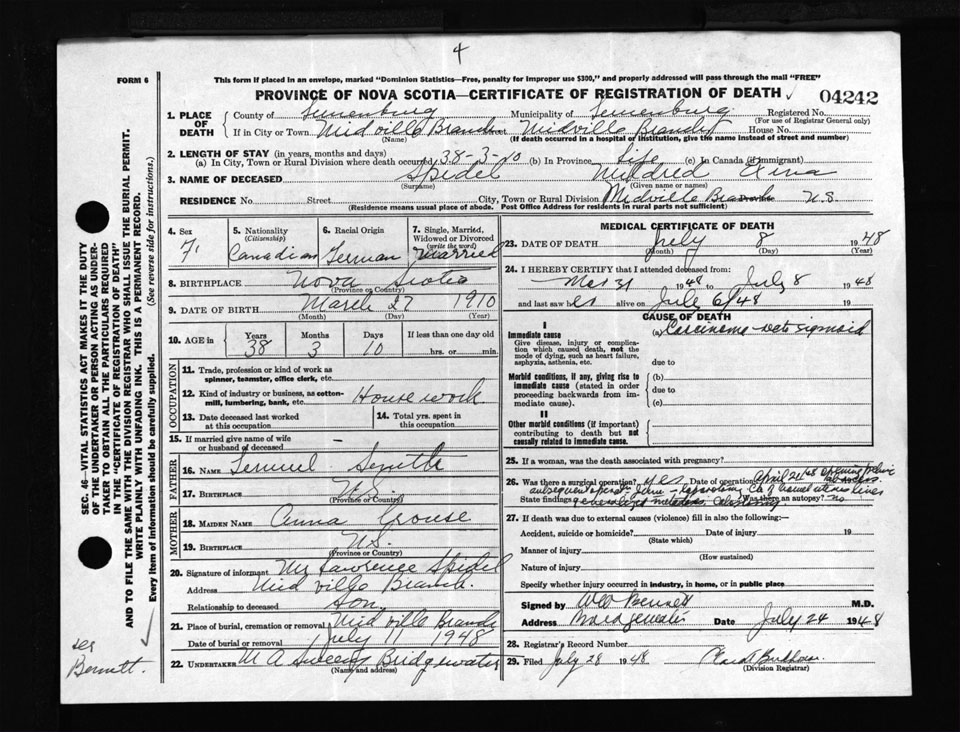 4
FORM 6
This form if placed in an envelope, marked "Dominion Statistics—Free, penalty for improper use $300," and properly addressed will pass through the mail "FREE"
PROVINCE OF NOVA SCOTIA—CERTIFICATE OF REGISTRATION OF DEATH ✓ 04242
1. PLACE OF DEATH
County of Lunenburg Municipality of Lunenburg Registered No.
(For use of Registrar General only)
If in City or Town Midville Branch Midville Branch House No.
(Name) (If death occurred in a hospital or institution, give the name instead of street and number)
2. LENGTH OF STAY (in years, months and days)
(a) In City, Town or Rural Division where death occurred 38-3-10 (b) In Province Life (c) In Canada (if immigrant)
3. NAME OF DECEASED Spidel Mildred Exina
(Surname) (Given name or names)
RESIDENCE No. Street City, Town or Rural Division Midville Branch N.S.
(Residence means usual place of abode. Post Office Address for residents in rural parts not sufficient) Province
4. Sex
F.
5. Nationality
(Citizenship)
Canadian
6. Racial Origin
German
7. Single, Married, Widowed or Divorced
(write the word)
Married
8. BIRTHPLACE Nova Scotia
(Province or Country)
9. DATE OF BIRTH March 27 1910
(Month) (Day) (Year)
10. AGE in
Years Months Days If less than one day old
38 3 10 hrs. or min.
OCCUPATION
11. Trade, profession or kind of work as
spinner, teamster, office clerk, etc.
12. Kind of industry or business, as cotton-
mill, lumbering, bank, etc. House work
13. Date deceased last worked
at this occupation
14. Total yrs. spent in
this occupation
15. If married give name of wife
or husband of deceased –
FATHER
16. NAME Lemuel Smith
17. BIRTHPLACE N.S.
(Province or Country)
MOTHER
18. MAIDEN NAME Anna Crouse
19. BIRTHPLACE N.S.
(Province or Country)
20. Signature of informant Mr Lawrence Spidel
Address Midville Branch
Relationship to deceased Son
21. Place of burial, cremation or removal Midville Branch
Date of burial or removal July 11 1948
22. UNDERTAKER M A Sweeny Bridgewater
(Name and address)
MEDICAL CERTIFICATE OF DEATH
23. DATE OF DEATH July 8 1948
(Month) (Day) (Year)
24. I HEREBY CERTIFY that I attended deceased from:
Mar 31 1948 to July 8 1948
and last saw her alive on July 6/48 19
CAUSE OF DEATH
I
Immediate cause
Give disease, injury or complica-
tion which caused death, not the
mode of dying, such as heart failure,
asphyxia, asthenia, etc.
(a) Carcinoma sigmoid
due to
Morbid conditions, if any, giving rise to
immediate cause (stated in order
proceeding backwards from im-
mediate cause).
(b)
due to
(c)
II
Other morbid conditions (if important)
contributing to death but not
causally related to immediate cause.
25. If a woman, was the death associated with pregnancy?
26. Was there a surgical operation? yes Date of operation April 24 48 opening pelvic abscess.
State findings Was there an autopsy? no
27. If death was due to external causes (violence) fill in also the following:—
Accident, suicide or homicide? Date of injury 19
(State which)
Manner of injury
(How sustained)
Nature of injury
Specify whether injury occurred in industry, in home, or in public place
Signed by Bennett M.D.
Address Bridgewater Date July 24 1948
28. Registrar's Record Number
29. Filed July 28 1948
(Division Registrar)
SEC. 46—VITAL STATISTICS ACT MAKES IT THE DUTY
OF THE UNDERTAKER OR PERSON ACTING AS UNDER-
TAKER TO OBTAIN ALL THE PARTICULARS REQUIRED
IN THE "CERTIFICATE OF REGISTRATION OF DEATH"
AND TO FILE THE SAME WITH THE DIVISION REGISTRAR WHO SHALL ISSUE THE BURIAL PERMIT.
WRITE PLAINLY WITH UNFADING INK. THIS IS A PERMANENT RECORD.
Every item of information should be carefully supplied. (See reverse side for instructions.)
Bennett.